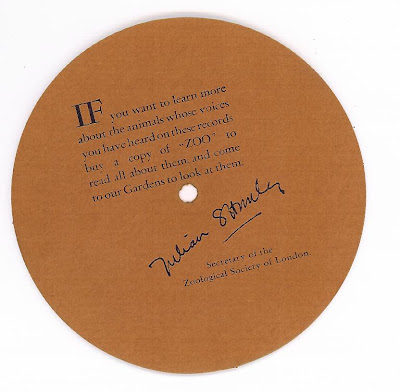 IF you want to learn more
about the animals whose voices
you have heard on these records
buy a copy of "ZOO" to
read all about them, and come
to our Gardens to look at them.
Julian S Huxley
Secretary of the
Zoological Society of London.